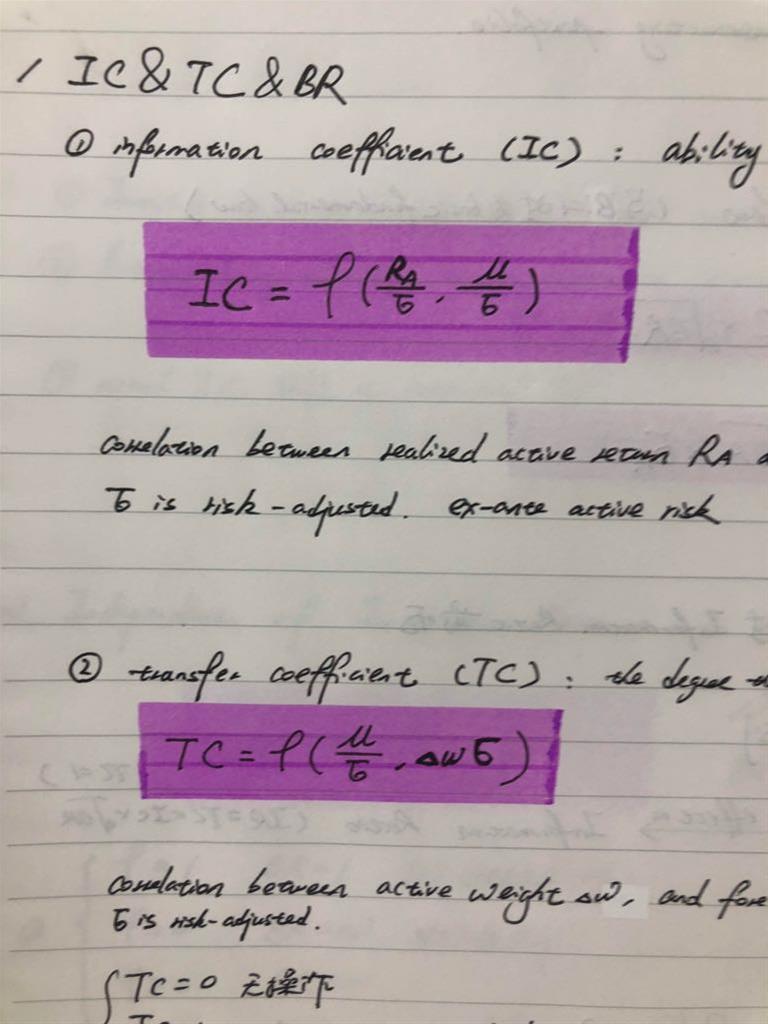 / IC & TC & BR
① information coefficient (IC) : ability
IC = ρ(R_A/σ, μ/σ)
correlation between realized active return RA
σ is risk-adjusted. ex-ante active risk
② transfer coefficient (TC) : the degree
TC = ρ(μ/σ, Δwσ)
correlation between active weight Δw, and fore
σ is risk-adjusted.
{ TC = 0 无操作